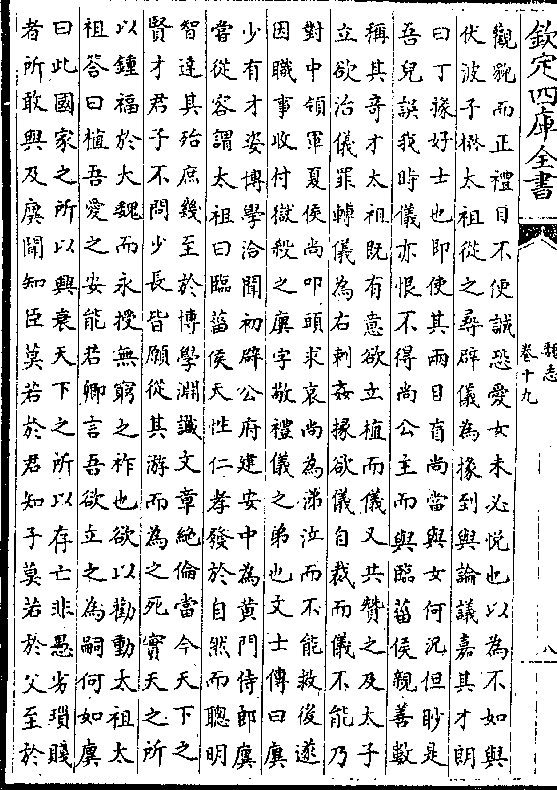 欽定四庫全書
魏志
卷十九
八
觀貌而正禮目不便誠恐愛女未必悅也以為不如與
伏波子楙太祖從之尋辟儀為掾到與論議嘉其才朗
曰丁掾好士也即使其兩目盲尚當與女何況但眇是
吾兒誤我時儀亦恨不得尚公主而與臨菑侯親善數
稱其奇才太祖既有意欲立植而儀又共贊之及太子
立欲治儀罪轉儀為右刺姦掾欲儀自裁而儀不能乃
對中領軍夏侯尚叩頭求哀尚為涕泣而不能救後遂
因職事收付獄殺之廙字敬禮儀之弟也文士傳曰廙
少有才姿博學洽聞初辟公府建安中為黄門侍郎廙
嘗從容謂太祖曰臨菑侯天性仁孝發於自然而聰明
智達其殆庶幾至於博學淵識文章絶倫當今天下之
賢才君子不問少長皆願從其游而為之死實天之所
以鍾福於大魏而永授無窮之祚也欲以勸動太祖太
祖答曰植吾愛之安能若卿言吾欲立之為嗣何如廙
曰此國家之所以興衰天下之所以存亡非愚劣瑣賤
者所敢與及廙聞知臣莫若於君知子莫若於父至於